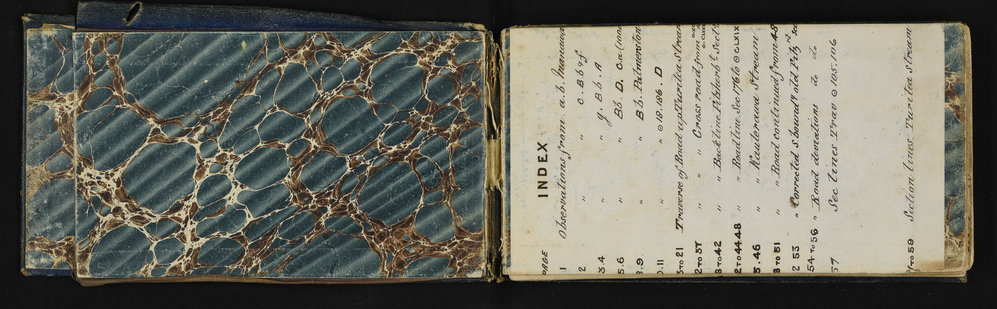 INDEX
PAGE
1 Observations from a.b. Manawa
2 " " C. B b & f
3.4 " " g. B b. A
5.6 " " B b. D. C.a
8.9 " " B b. Palmerston
0.11 " " ⊙ 18.186. D
to 21 Traverse of Road up Turitea Stream
2 TO 37 " " Cross road from
8 TO 42 " " Back line
2 TO 44.48 " " Road line Sec. 176 to ⊙ CLXIX
5.46 " " Stream
8 TO 51 " " Road continued from 48
2 53 " Corrected S. boundy old
54 TO 56 " Road deviations do do
57 Sec lines Trav ⊙ 105.106
TO 59 Section lines Turitea Stream